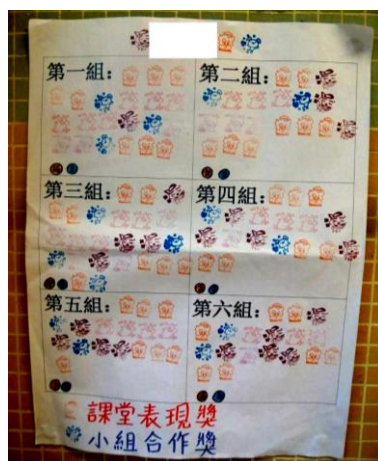 第一組: 第二組:
第三組: 第四組:
第五組: 第六組:
課堂表現獎
小組合作獎